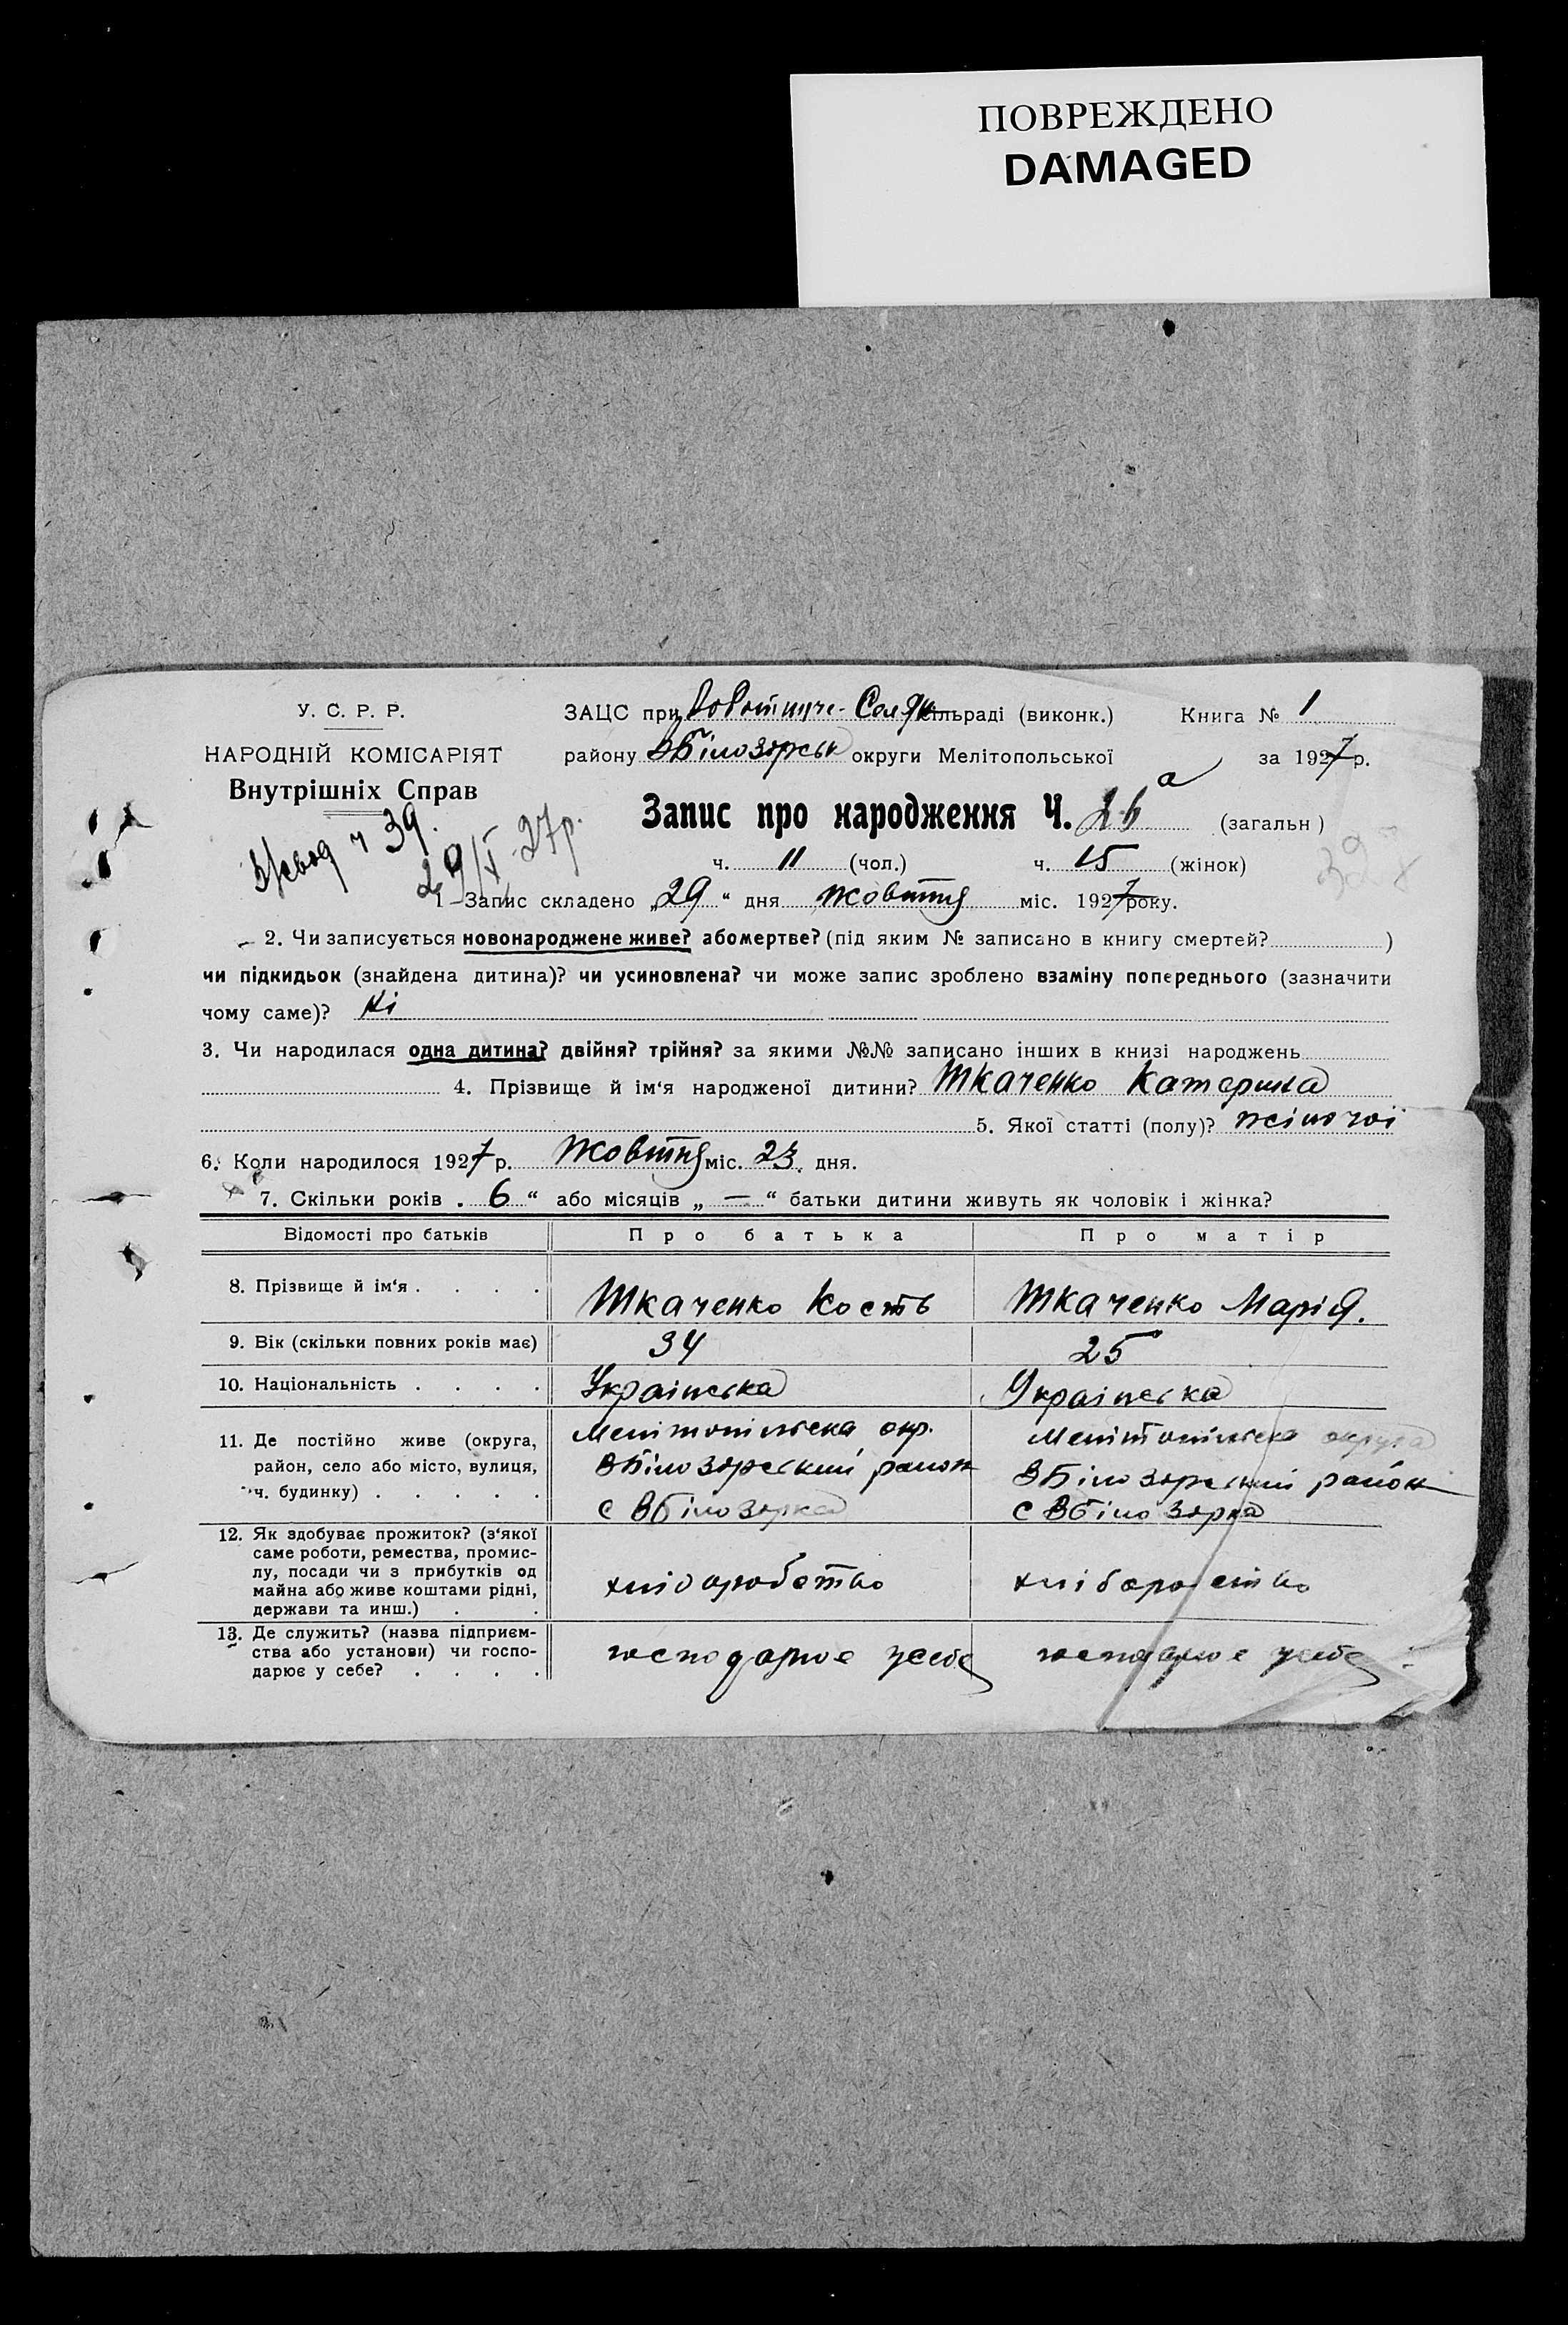 ПОВРЕЖДЕНО
DAMAGED
У. С. Р. Р.
НАРОДНІЙ КОМІСАРІЯТ
Внутрішніх Справ
ч 39.
29/X 27р.
ЗАЦС при сільраді (виконк.) Книга № 1
району ВБілозірськ округи Мелітопольської за 1927 р.
Запис про народження Ч. 26 а (загальн)
ч. 11 (чол.) ч. 15 (жінок)
1 Запис складено „29“ дня жовтня міс. 1927 року.
2. Чи записується новонароджене живе? або мертве? (під яким № записано в книгу смертей? )
чи підкидьок (знайдена дитина)? чи усиновлена? чи може запис зроблено взаміну попереднього (зазначити
чому саме)? Ні
3. Чи народилася одна дитина? двійня? трійня? за якими №№ записано інших в книзі народжень
4. Прізвище й ім‘я народженої дитини? Ткаченко Катерина
5. Якої статті (полу)? жіночої
6. Коли народилося 1927 р. Жовтня міс. 23 дня.
7. Скільки років „ 6 “ або місяців „ — “ батьки дитини живуть як чоловік і жінка?
Відомості про батьків Про батька Про матір
8. Прізвище й ім‘я . . . . Ткаченко Кость Ткаченко Марія.
9. Вік (скільки повних років має) 34 25
10. Національність . . . . Українська Українська
11. Де постійно живе (округа, Мелітопільська окр. Мелітопільська округа
район, село або місто, вулиця, ВБілозірський район ВБілозірський район
ч. будинку) . . . . . с ВБілозірка с ВБілозірка
12. Як здобуває прожиток? (з‘якої
саме роботи, ремества, промис-
лу, посади чи з прибутків од хліборобство хліборобство
майна або живе коштами рідні,
держави та инш.) . .
13. Де служить? (назва підприєм-
ства або установи) чи госпо- господарює усебе господарює усебе
дарює у себе? . . . .